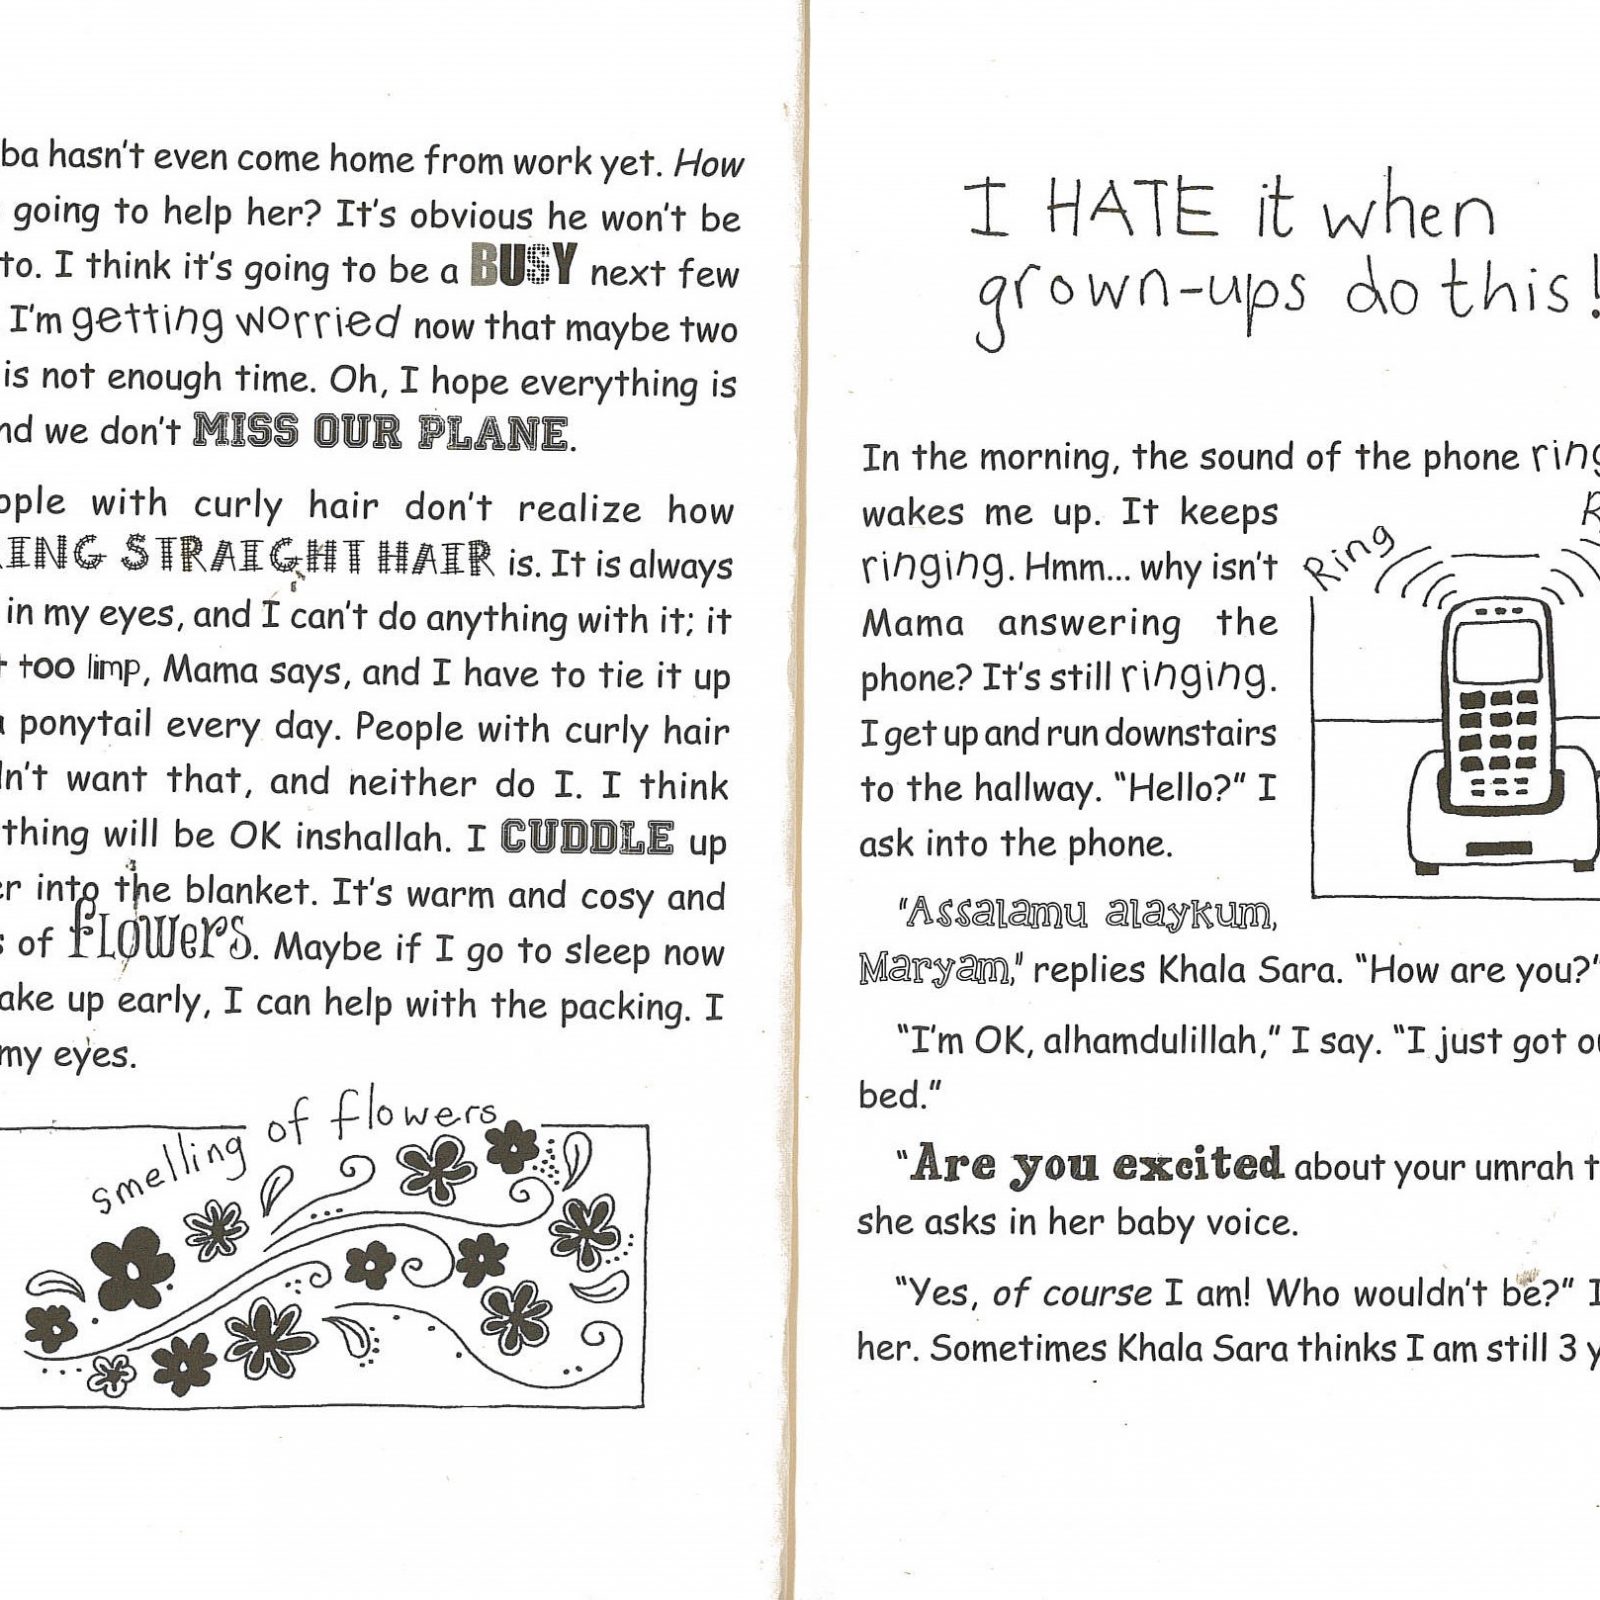 ba hasn't even come home from work yet. How
going to help her? It's obvious he won't be
to. I think it's going to be a BUSY next few
I'm getting worried now that maybe two
is not enough time. Oh, I hope everything is
nd we don't MISS OUR PLANE.
ople with curly hair don't realize how
RING STRAIGHT HAIR is. It is always
in my eyes, and I can't do anything with it; it
too limp, Mama says, and I have to tie it up
ponytail every day. People with curly hair
n't want that, and neither do I. I think
thing will be OK inshallah. I CUDDLE up
er into the blanket. It's warm and cosy and
s of flowers. Maybe if I go to sleep now
ake up early, I can help with the packing. I
my eyes.
smelling of flowers
I HATE it when
grown-ups do this!
In the morning, the sound of the phone ring
wakes me up. It keeps
ringing. Hmm... why isn't
Mama answering the
phone? It's still ringing.
I get up and run downstairs
to the hallway. "Hello?" I
ask into the phone.
Ring
R
"Assalamu alaykum,
Maryam," replies Khala Sara. "How are you?"
"I'm OK, alhamdulillah," I say. "I just got ou
bed."
"Are you excited about your umrah t
she asks in her baby voice.
"Yes, of course I am! Who wouldn't be?" I
her. Sometimes Khala Sara thinks I am still 3 y